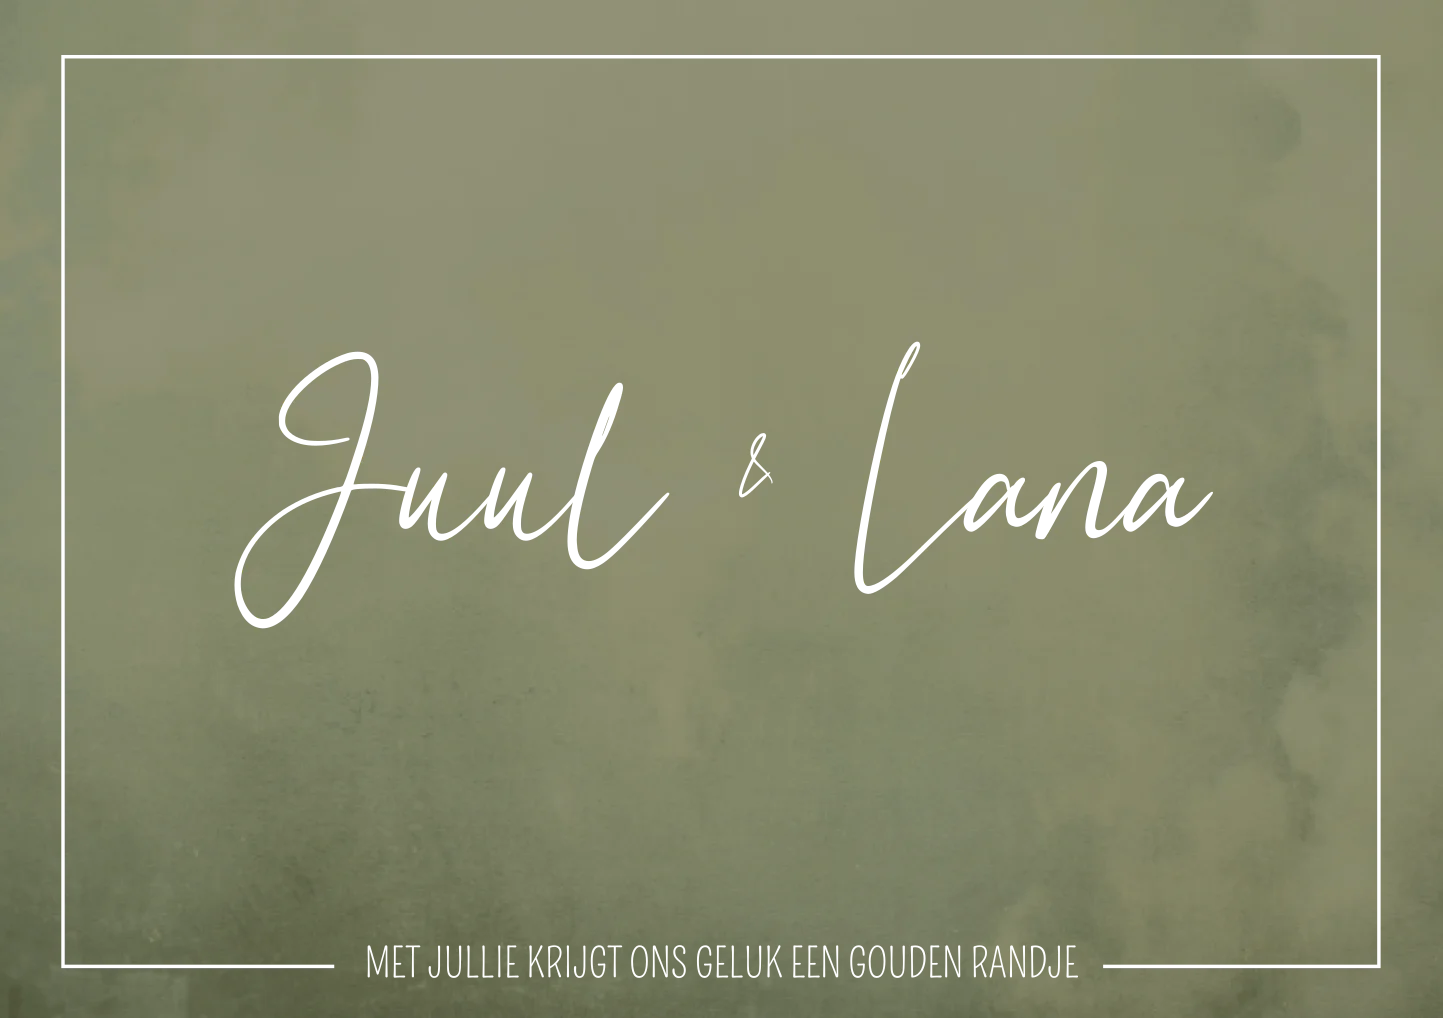 Juul & Lana
MET JULLIE KRIJGT ONS GELUK EEN GOUDEN RANDJE